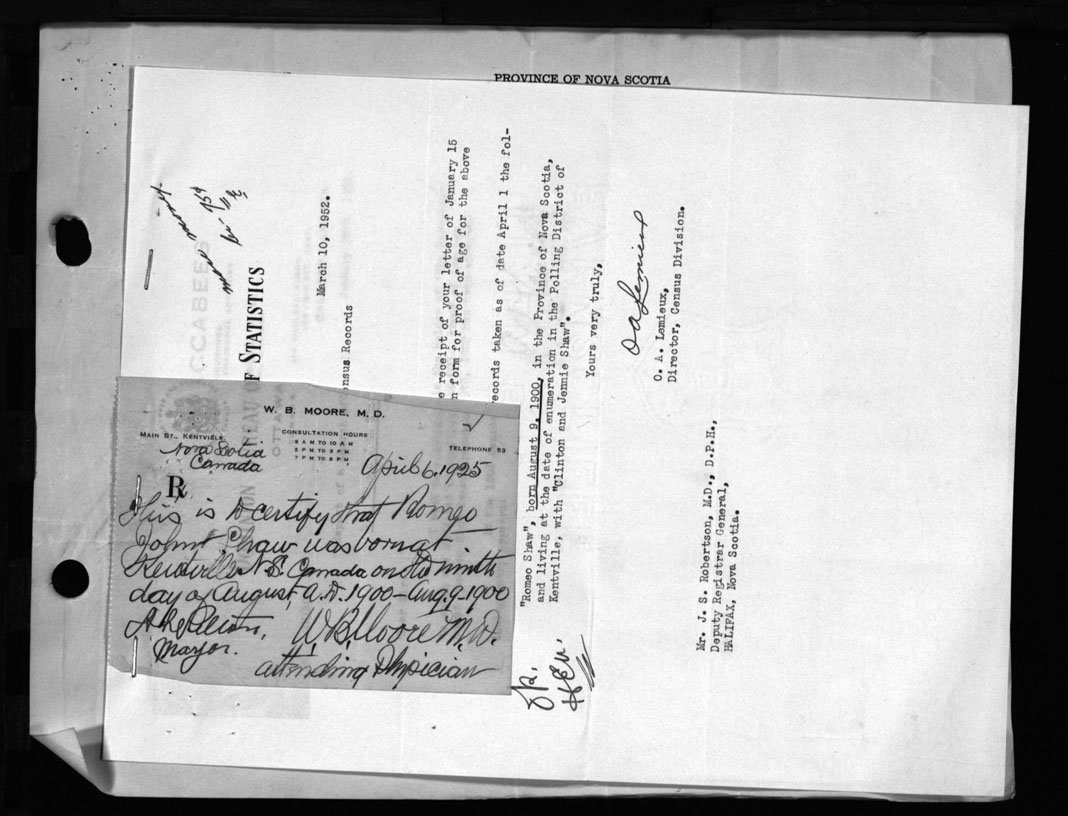 PROVINCE OF NOVA SCOTIA
F STATISTICS
March 10, 1952.
ensus Records
e receipt of your letter of January 15
n form for proof of age for the above
ecords taken as of date April 1 the fol-
"Romeo Shaw", born August 9, 1900, in the Province of Nova Scotia,
and living at the date of enumeration in the Polling District of
Kentville, with "Clinton and Jennie Shaw".
Yours very truly,
O A Lemieux
O. A. Lemieux,
Director, Census Division.
Mr. J. S. Robertson, M.D., D.P.H.,
Deputy Registrar General,
HALIFAX, Nova Scotia.
W. B. MOORE, M. D.
MAIN ST., KENTVILLE
Nova Scotia
Canada
CONSULTATION HOURS
9 A M TO 10 A M
2 P M TO 3 P M
7 P M TO 8 P M
TELEPHONE 53
April 6. 1925
℞
This is to certify that Romeo
John Shaw was born at
Kentville N.S. Canada on the ninth
day of August, A.D. 1900 - Aug 9-1900
W. B. Moore M.D.
Mayor.
attending Physician